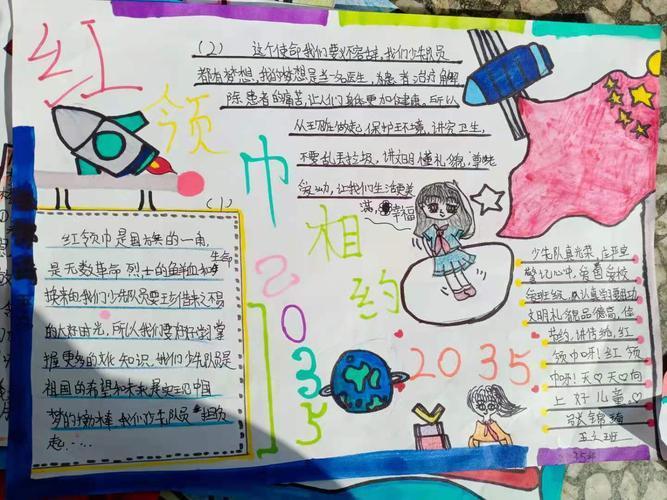 红领巾相约
2035
2035
(1)
红领巾是国旗的一角,
是无数革命烈士的鲜血和生命
换来的我们少先队员要珍惜来之不易
的大好时光,所以我们要好好掌
握更多的文化知识。我们少先队员是
祖国的希望和未来是实现中国
梦的接棒我们少先队员担负
起……
(2) 这个使命我们要义不容辞,我们少先队员
都有梦想,我的梦想是当一名医生,为患者治疗解
除患者的痛苦,让人们身体更加健康,所以
从现在做起,保护环境,讲究卫生,
不要乱丢垃圾,讲文明懂礼貌,尊敬
劳动,让我们生活更美
满,幸福
少先队真光荣,庄严宣
誓记心中,爱爸爱校
爱班级,认真学习
文明礼貌品德高,
讲传统,红
领巾呀!红领
巾呀!天天向
上好儿童。
张锦
五班